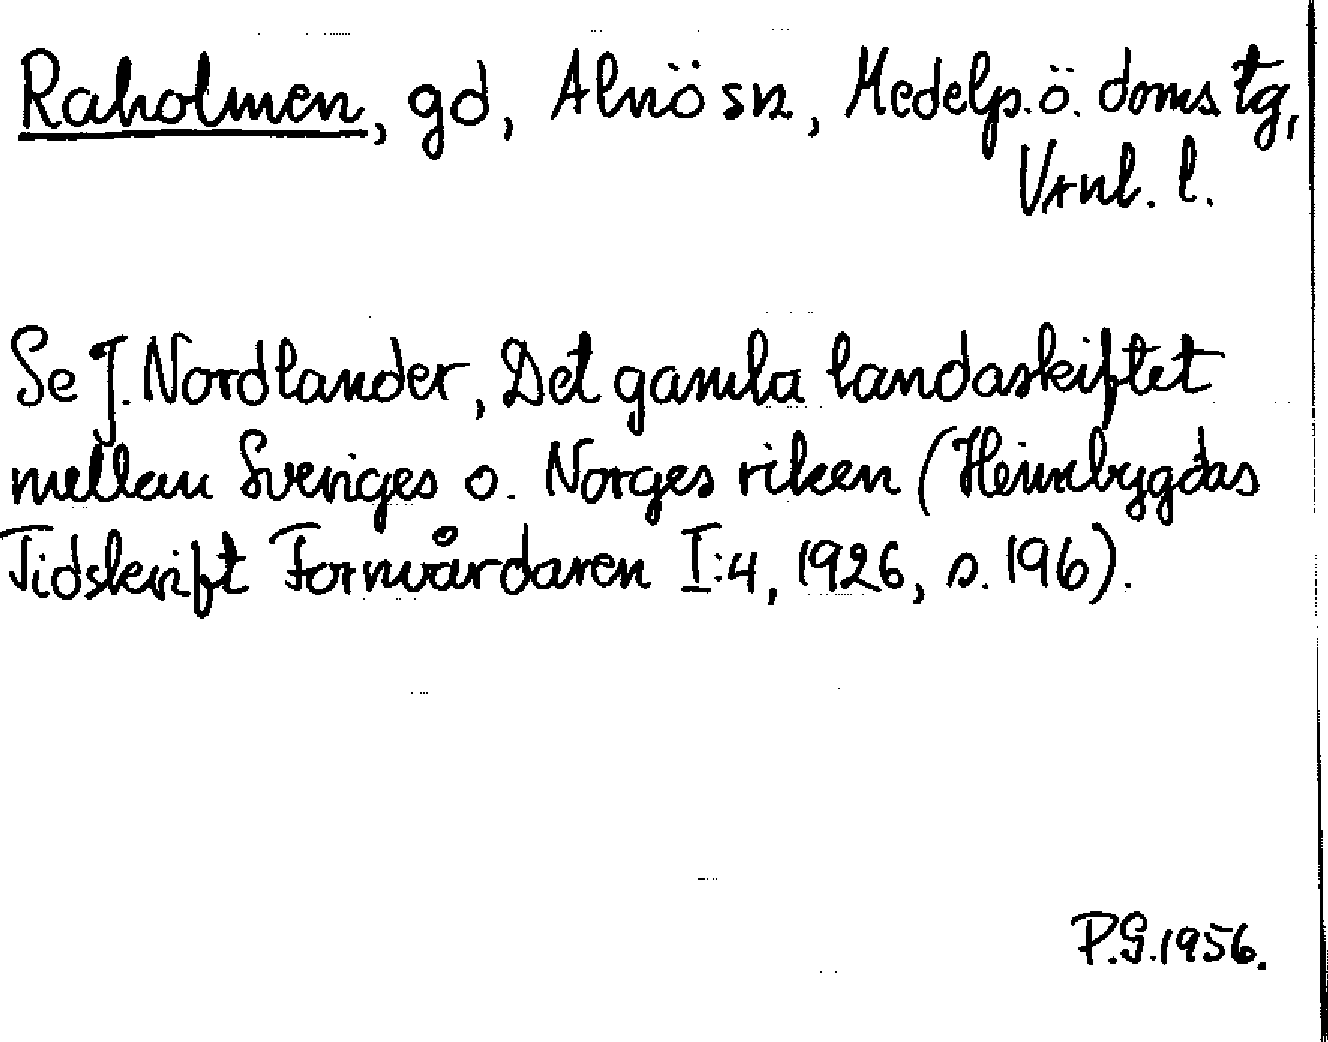 Raholmen, gd, Alnö sn, Medelp. ö. doms. tg,
Vrnl. l.
Se J. Nordlander, Det gamla landaskiftet
mellan Sveriges o. Norges riken (Heimbygdas
Tidskrift Fornvårdaren I:4, 1926, s. 196).
P.G. 1956.